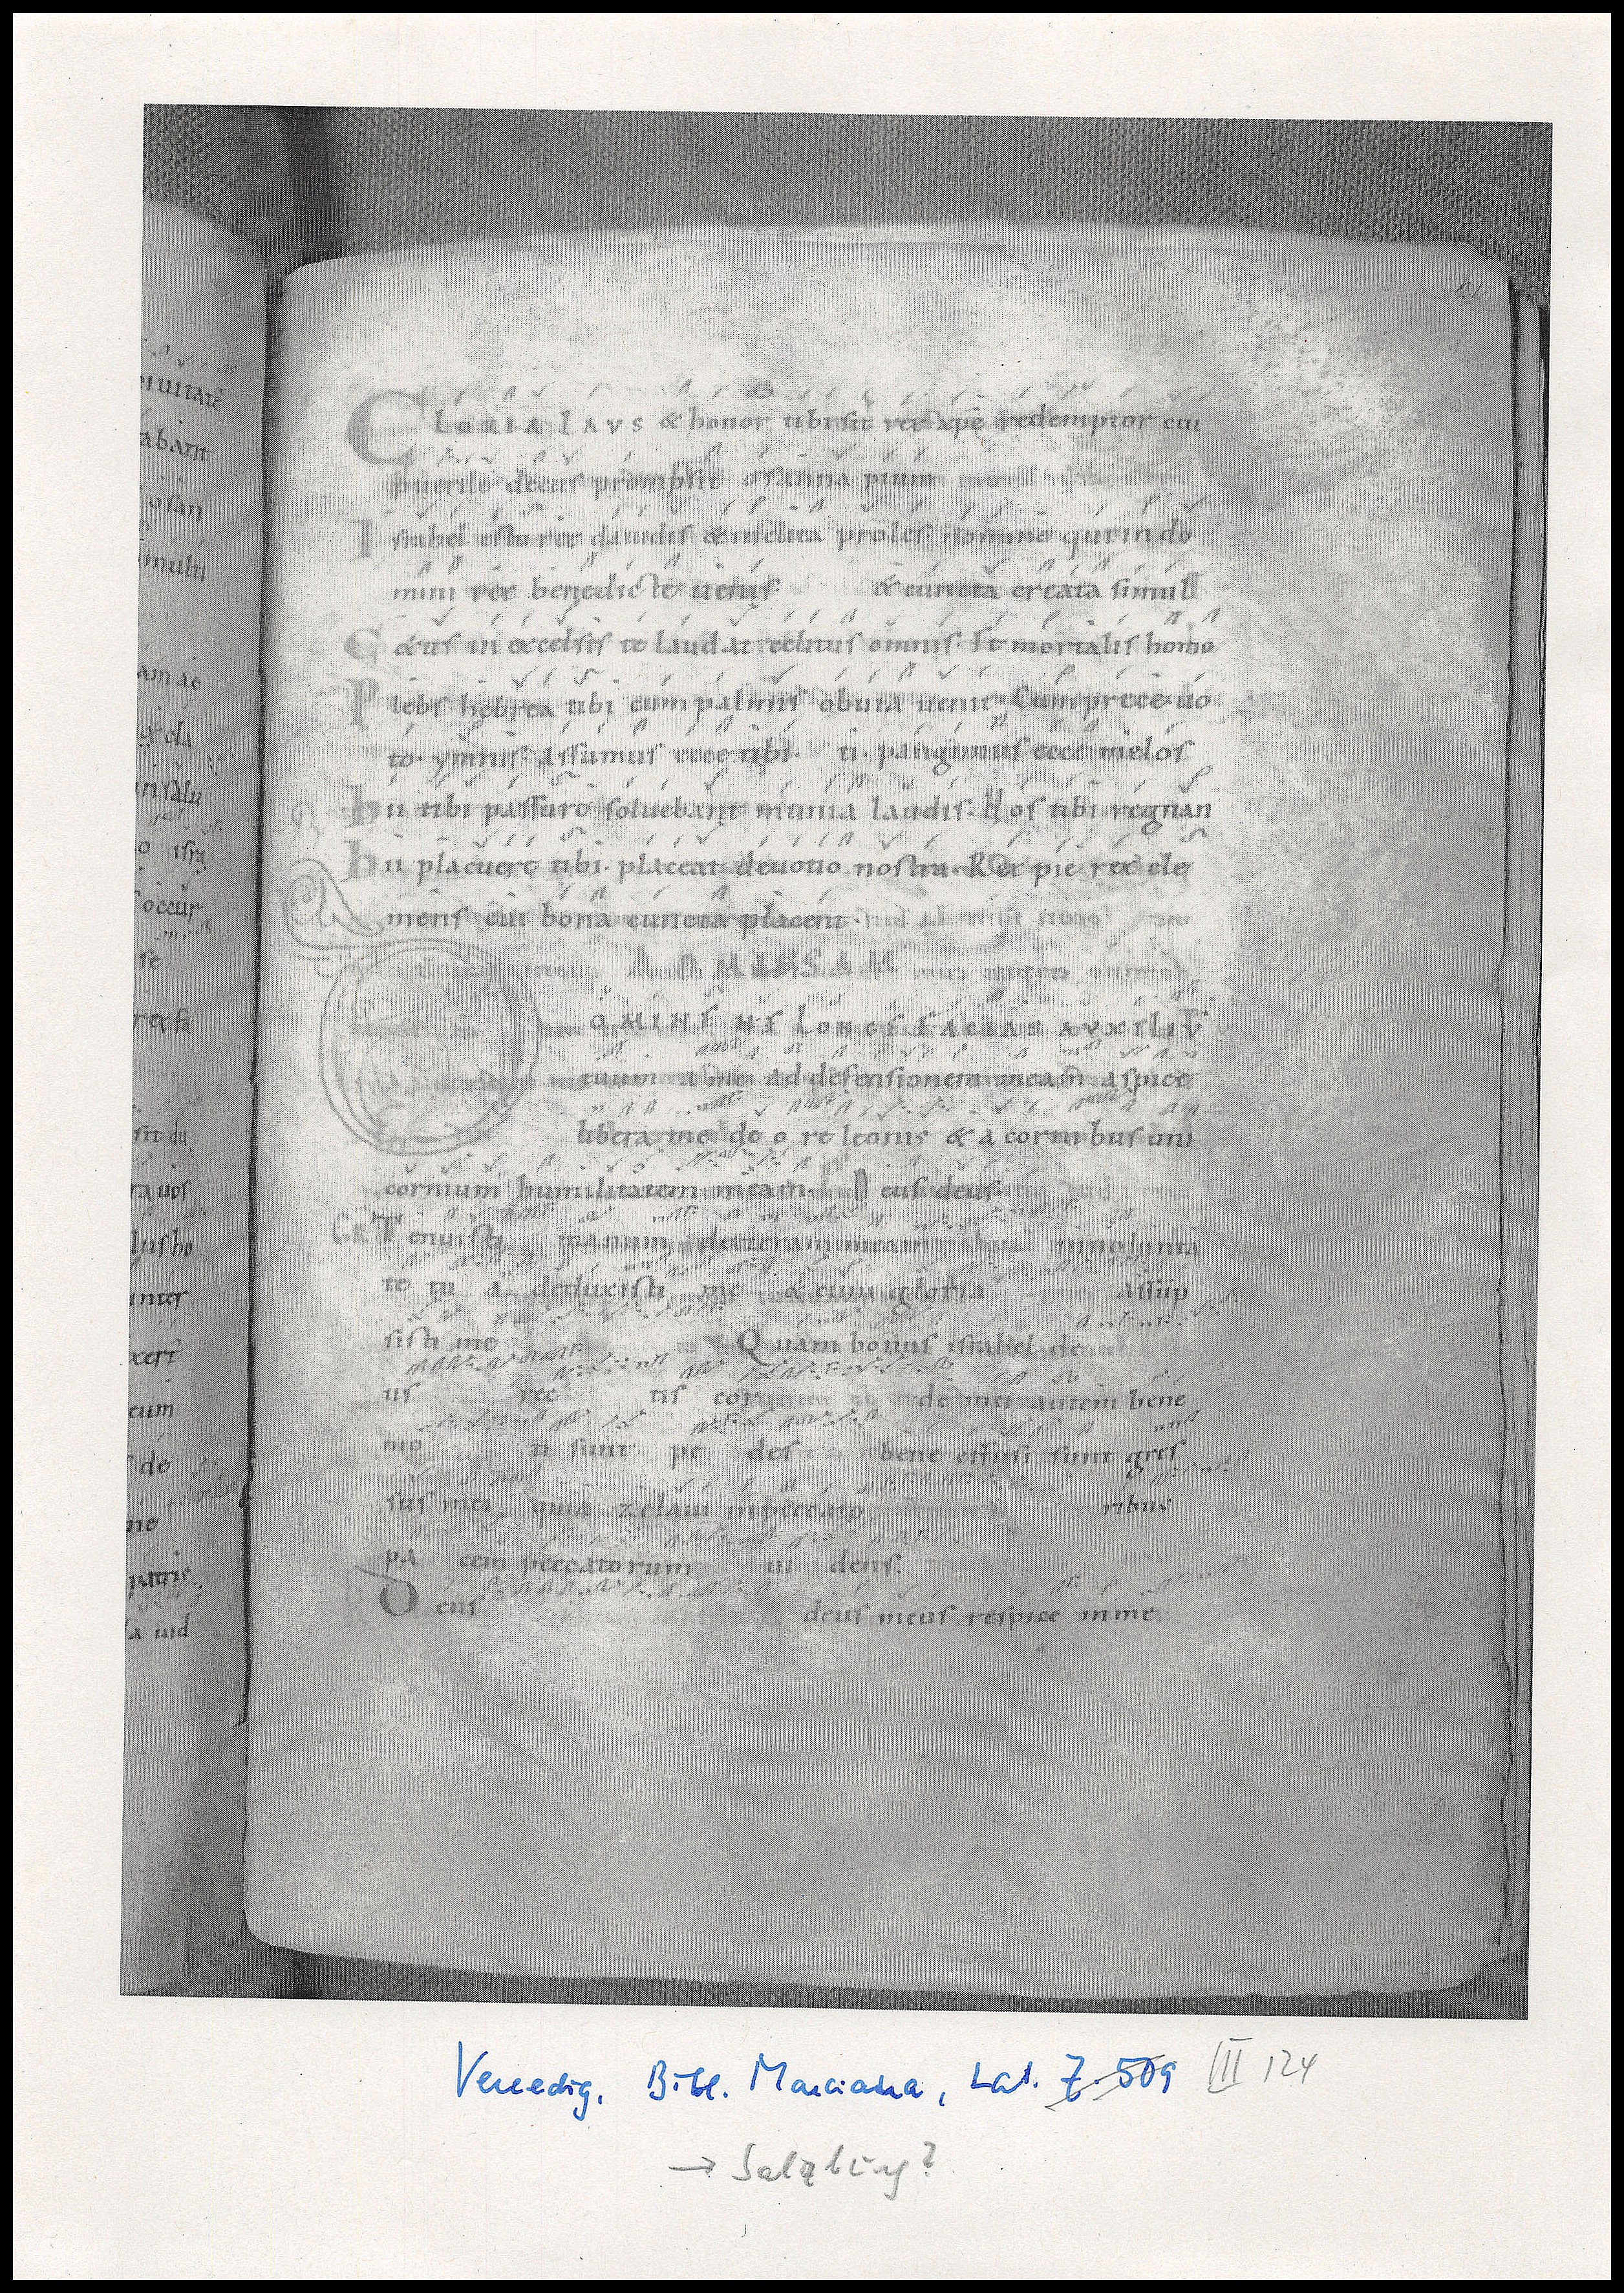 GLORIA LAVS & honor tibi sit rex xpe redemptor cui
puerile decus prompsit osanna pium
Israhel es tu rex dauidis & inclita proles. nomine qui in do
mini rex benedicte uenis. & cuncta creata simul
Coetus in excelsis te laudat celitus omnis. Et mortalis homo
Plebs hebrea tibi cum palmis obuia uenit. Cum prece uo
to. ymnis. assumus ecce tibi. ti. pangimus ecce melos
hii tibi passuro soluebant munia laudis. Nos tibi regnan
hii placuere tibi. placeat deuotio nostra. Rex pie rex cle
mens cui bona cuncta placent.
AD MISSAM
DOMINE NE LONGE FACIAS AVXILIV
tuum a me ad defensionem meam aspice
libera me de o re leonis & a cornibus uni
cornium humilitatem meam. D eus deus.
GR Tenuisti manum dexteram meam in uolunta
te tu a deduxisti me & cum gloria assup
sisti me Quam bonus israhel de
us rec tis cor de mei autem bene
mo ti sunt pe des bene effusi sunt gres
sus mei quia zelaui in peccato ribus
pa cem peccatorum ui dens.
Deus deus meus respice in me
abant
osan
multi
am ac
occur
se
inter
cum
de
patris
Venedig, Bibl. Marciana, Lat. Z. 509 III 124
→ Salzburg?